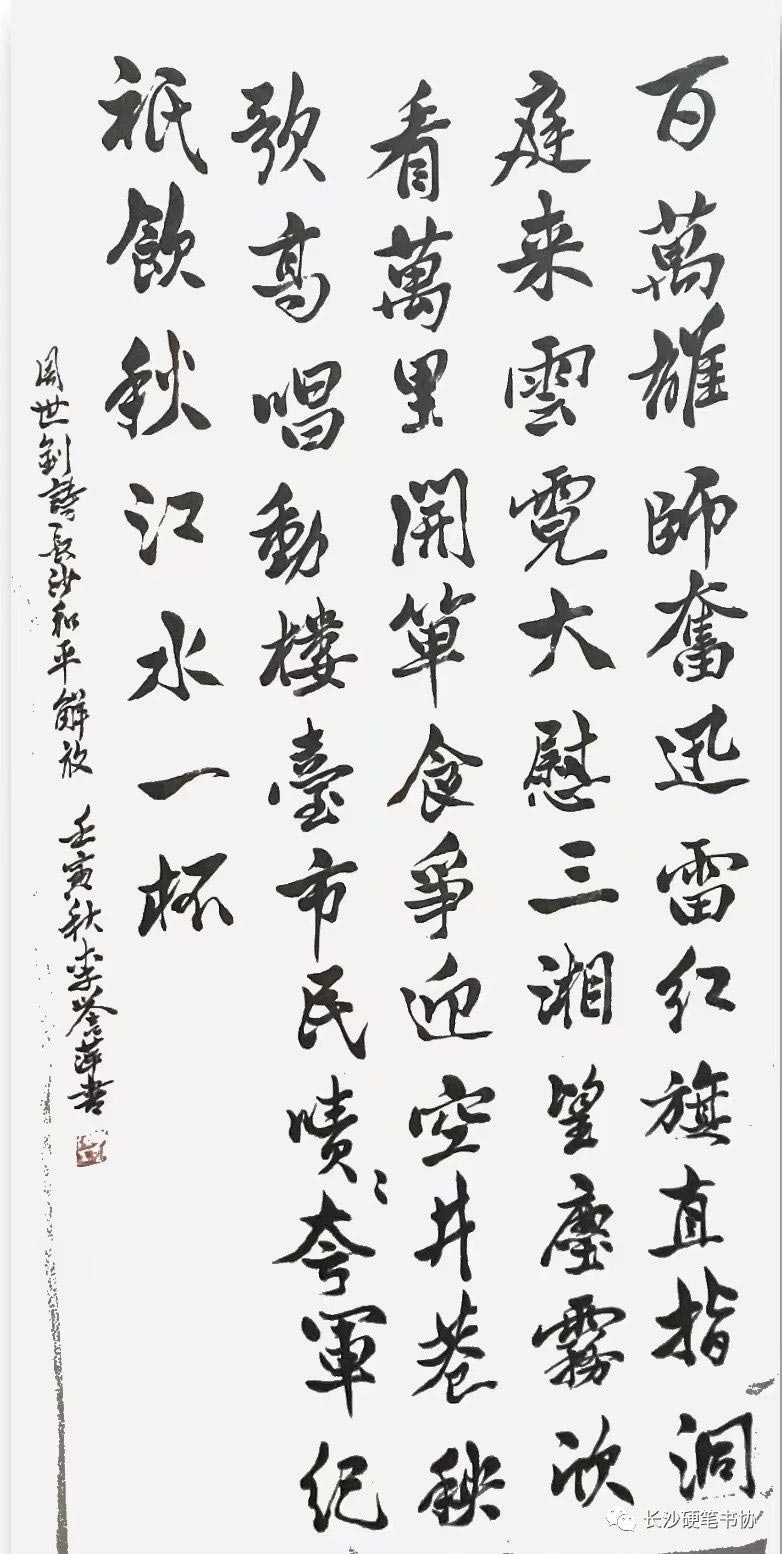 百萬雄師奮迅雷紅旗直指洞
庭来雲霓大慰三湘望塵霧欣
看萬里開箪食爭迎空井巷秧
歌高唱動樓臺市民嘖〻夸軍紀
祇飲秋江水一杯
周世釗詩長沙和平解放 壬寅秋李譽萍书
长沙硬笔书协